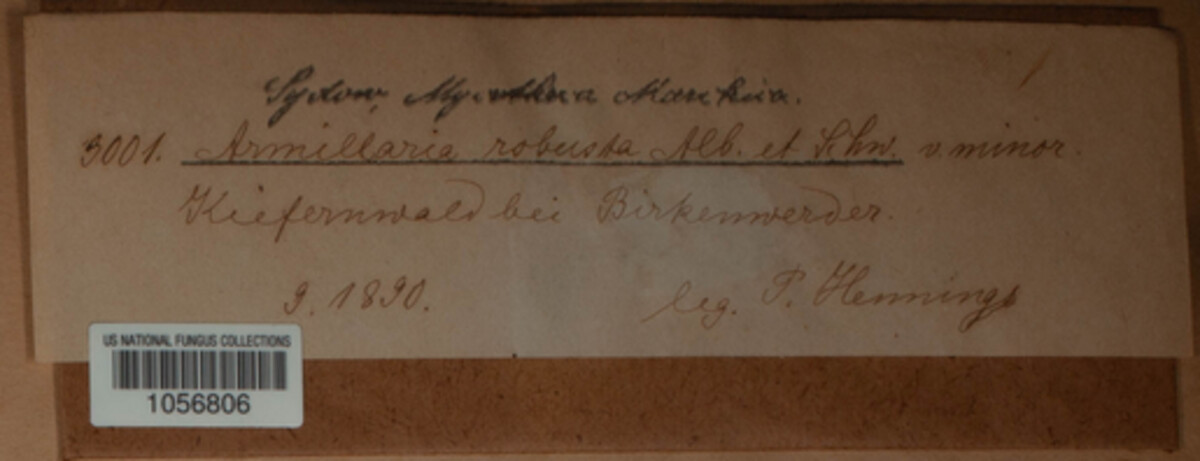 Sydow, Mycotheca Marchica.
3001. Armillaria robusta Alb. et Schw. v. minor.
Kiefernwald bei Birkenwerder.
9. 1890.
leg. P. Hennings
US NATIONAL FUNGUS COLLECTIONS
1056806